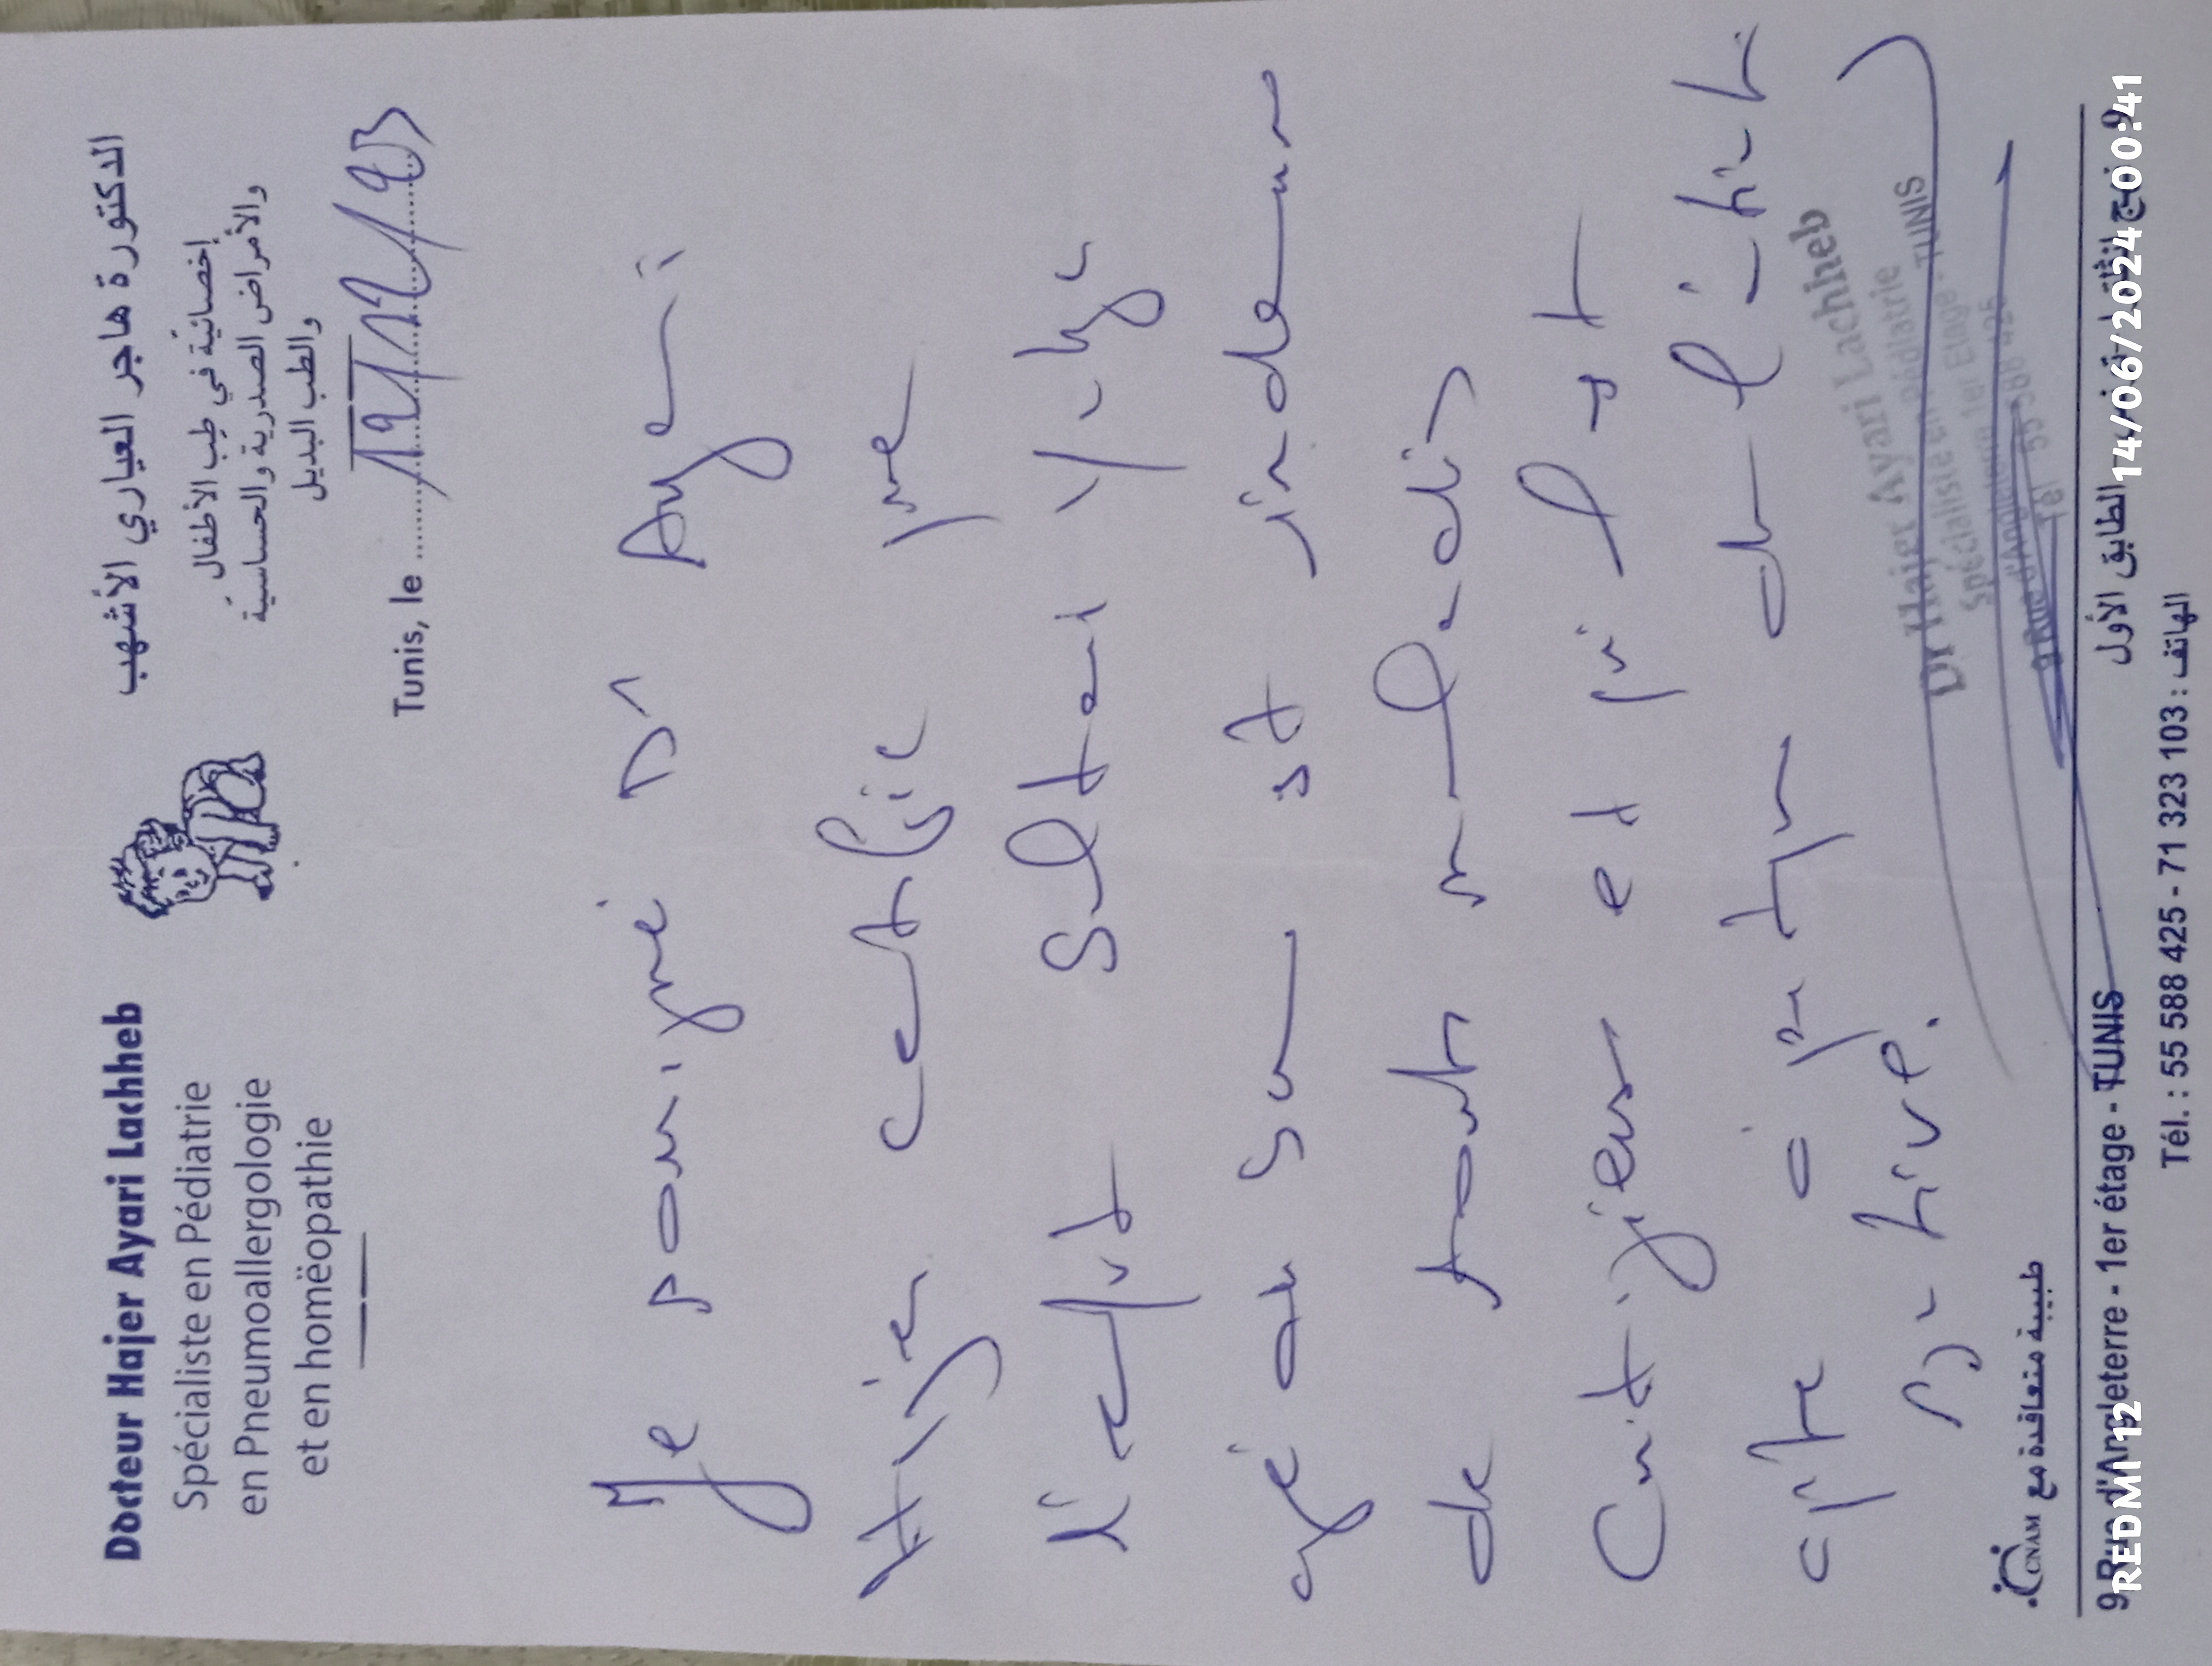 Docteur Hajer Ayari Lachheb
Spécialiste en Pédiatrie
en Pneumoallergologie
et en homëopathie
الدكتورة هاجر العياري الأشهب
إخصائية في طب الأطفال
والأمراض الصدرية والحساسية
والطب البديل
Tunis, le
Je soussigné Dr Ayari
Hajer certifie que
l'enfant
agé de 5 ans est indemne
de toute maladie
Contagieuse et qu'il est
apte à pratiquer de
Dr Hajer Ayari Lachheb
Spécialiste en Pédiatrie
9 Rue d'Angleterre 1er Etage - TUNIS
Tél 55 588 425
طبيبة متعاقدة مع CNAM
9 Rue d'Angleterre - 1er étage - TUNIS
الطابق الأول
Tél. : 55 588 425 - 71 323 103 : الهاتف
REDMI 12
14/06/2024 00:41